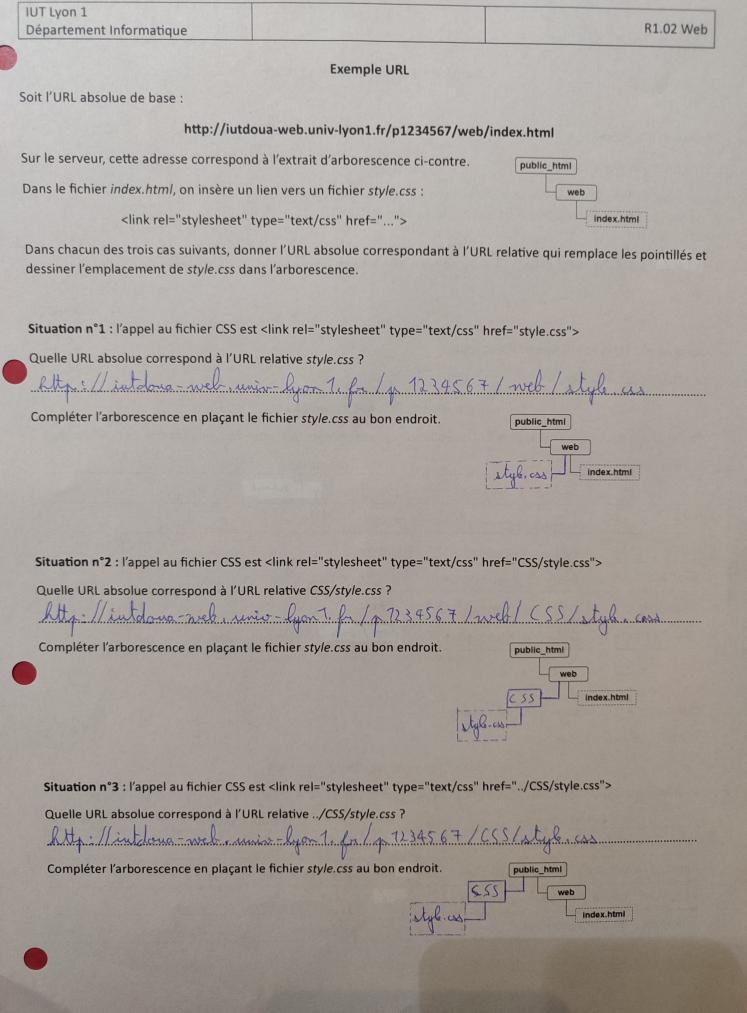 IUT Lyon 1
Département Informatique
R1.02 Web
Exemple URL
Soit l'URL absolue de base :
http://iutdoua-web.univ-lyon1.fr/p1234567/web/index.html
Sur le serveur, cette adresse correspond à l'extrait d'arborescence ci-contre.
public_html
Dans le fichier index.html, on insère un lien vers un fichier style.css :
web
<link rel="stylesheet" type="text/css" href="...">
index.html
Dans chacun des trois cas suivants, donner l'URL absolue correspondant à l'URL relative qui remplace les pointillés et
dessiner l'emplacement de style.css dans l'arborescence.
Situation n°1 : l'appel au fichier CSS est <link rel="stylesheet" type="text/css" href="style.css">
Quelle URL absolue correspond à l'URL relative style.css ?
http://iutdoua-web.univ-lyon1.fr/p1234567/web/style.css
Compléter l'arborescence en plaçant le fichier style.css au bon endroit.
public_html
web
style.css
index.html
Situation n°2 : l'appel au fichier CSS est <link rel="stylesheet" type="text/css" href="CSS/style.css">
Quelle URL absolue correspond à l'URL relative CSS/style.css ?
http://iutdoua-web.univ-lyon1.fr/p1234567/web/CSS/style.css
Compléter l'arborescence en plaçant le fichier style.css au bon endroit.
public_html
web
CSS
index.html
style.css
Situation n°3 : l'appel au fichier CSS est <link rel="stylesheet" type="text/css" href="../CSS/style.css">
Quelle URL absolue correspond à l'URL relative ../CSS/style.css ?
http://iutdoua-web.univ-lyon1.fr/p1234567/CSS/style.css
Compléter l'arborescence en plaçant le fichier style.css au bon endroit.
public_html
CSS
web
style.css
index.html